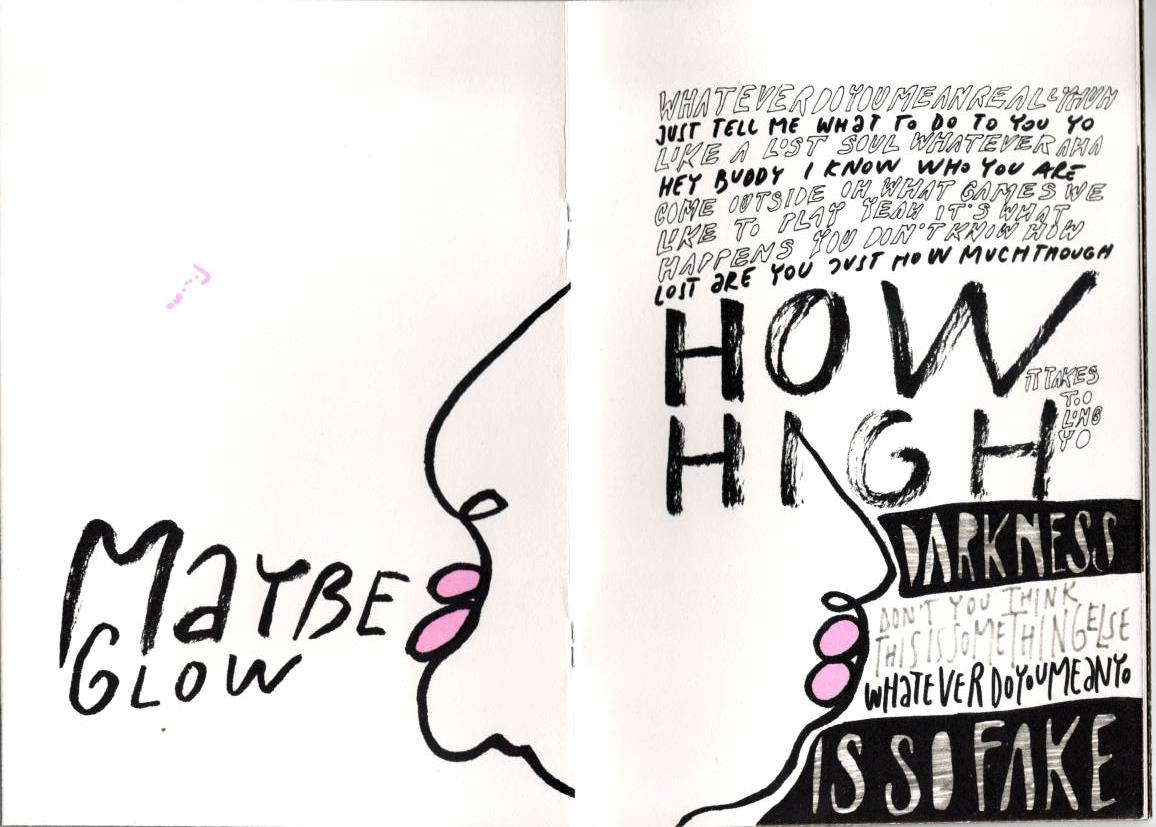 MaYBE
GLOW
WHATEVERDOYOUMEANREALLYHUH
JUST TELL ME WHaT To Do To YoU Yo
LIKE A LOST SOUL WHATEVER AHA
HEY BUDDY I KNOW WHO YOU ARE
COME OUTSIDE OH WHAT GAMES WE
LIKE TO PLAY YEAH IT'S WHAT
HAPPENS YOU DON'T KNOW HOW
LOST aRE YOU JUST HOW MUCHTHOUGH
HOW
HIGH
IT TAKES
TOO
LONG
YO
DARKNESS
DON'T YOU THINK
THIS IS SOMETHING ELSE
WHaTEVER DoYoUMEaNYo
IS SO FAKE